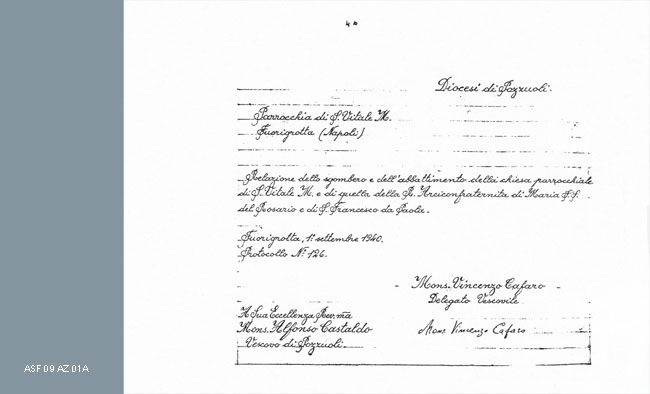 4º
Diocesi di Pozzuoli.
Parrocchia di S. Vitale M.
Fuorigrotta (Napoli)
Relazione dello sgombero e dell'abbattimento della chiesa parrocchiale
di S. Vitale M. e di quella della R. Arciconfraternita di Maria S.S.
del Rosario e di S. Francesco da Paola.
Fuorigrotta, 1º settembre 1940.
Protocollo Nº 126.
Mons. Vincenzo Cafaro
Delegato Vescovile.
A Sua Eccellenza Rev.ma
Mons. Alfonso Castaldo
Vescovo di Pozzuoli.
Mons Vincenzo Cafaro
ASF 09 AZ 01A